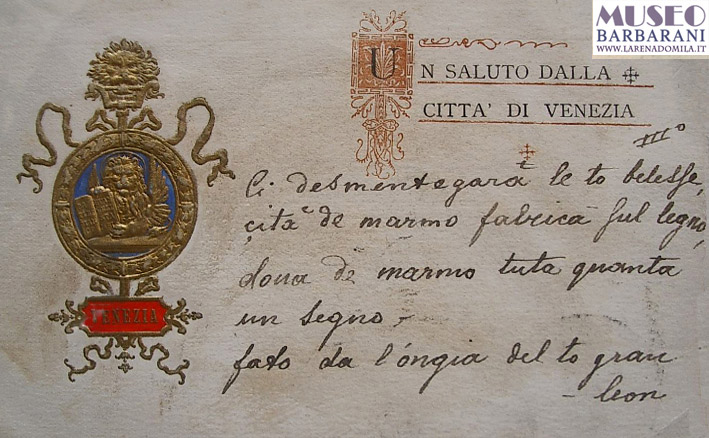 MUSEO
BARBARANI
WWW.LARENADOMILA.IT
UN SALUTO DALLA
CITTA' DI VENEZIA
III°
Ci desmentegarà le to belesse,
çità de marmo fabricà sul legno,
dona de marmo tuta quanta
un segno -
fato da l'óngia del to gran
- leon
VENEZIA